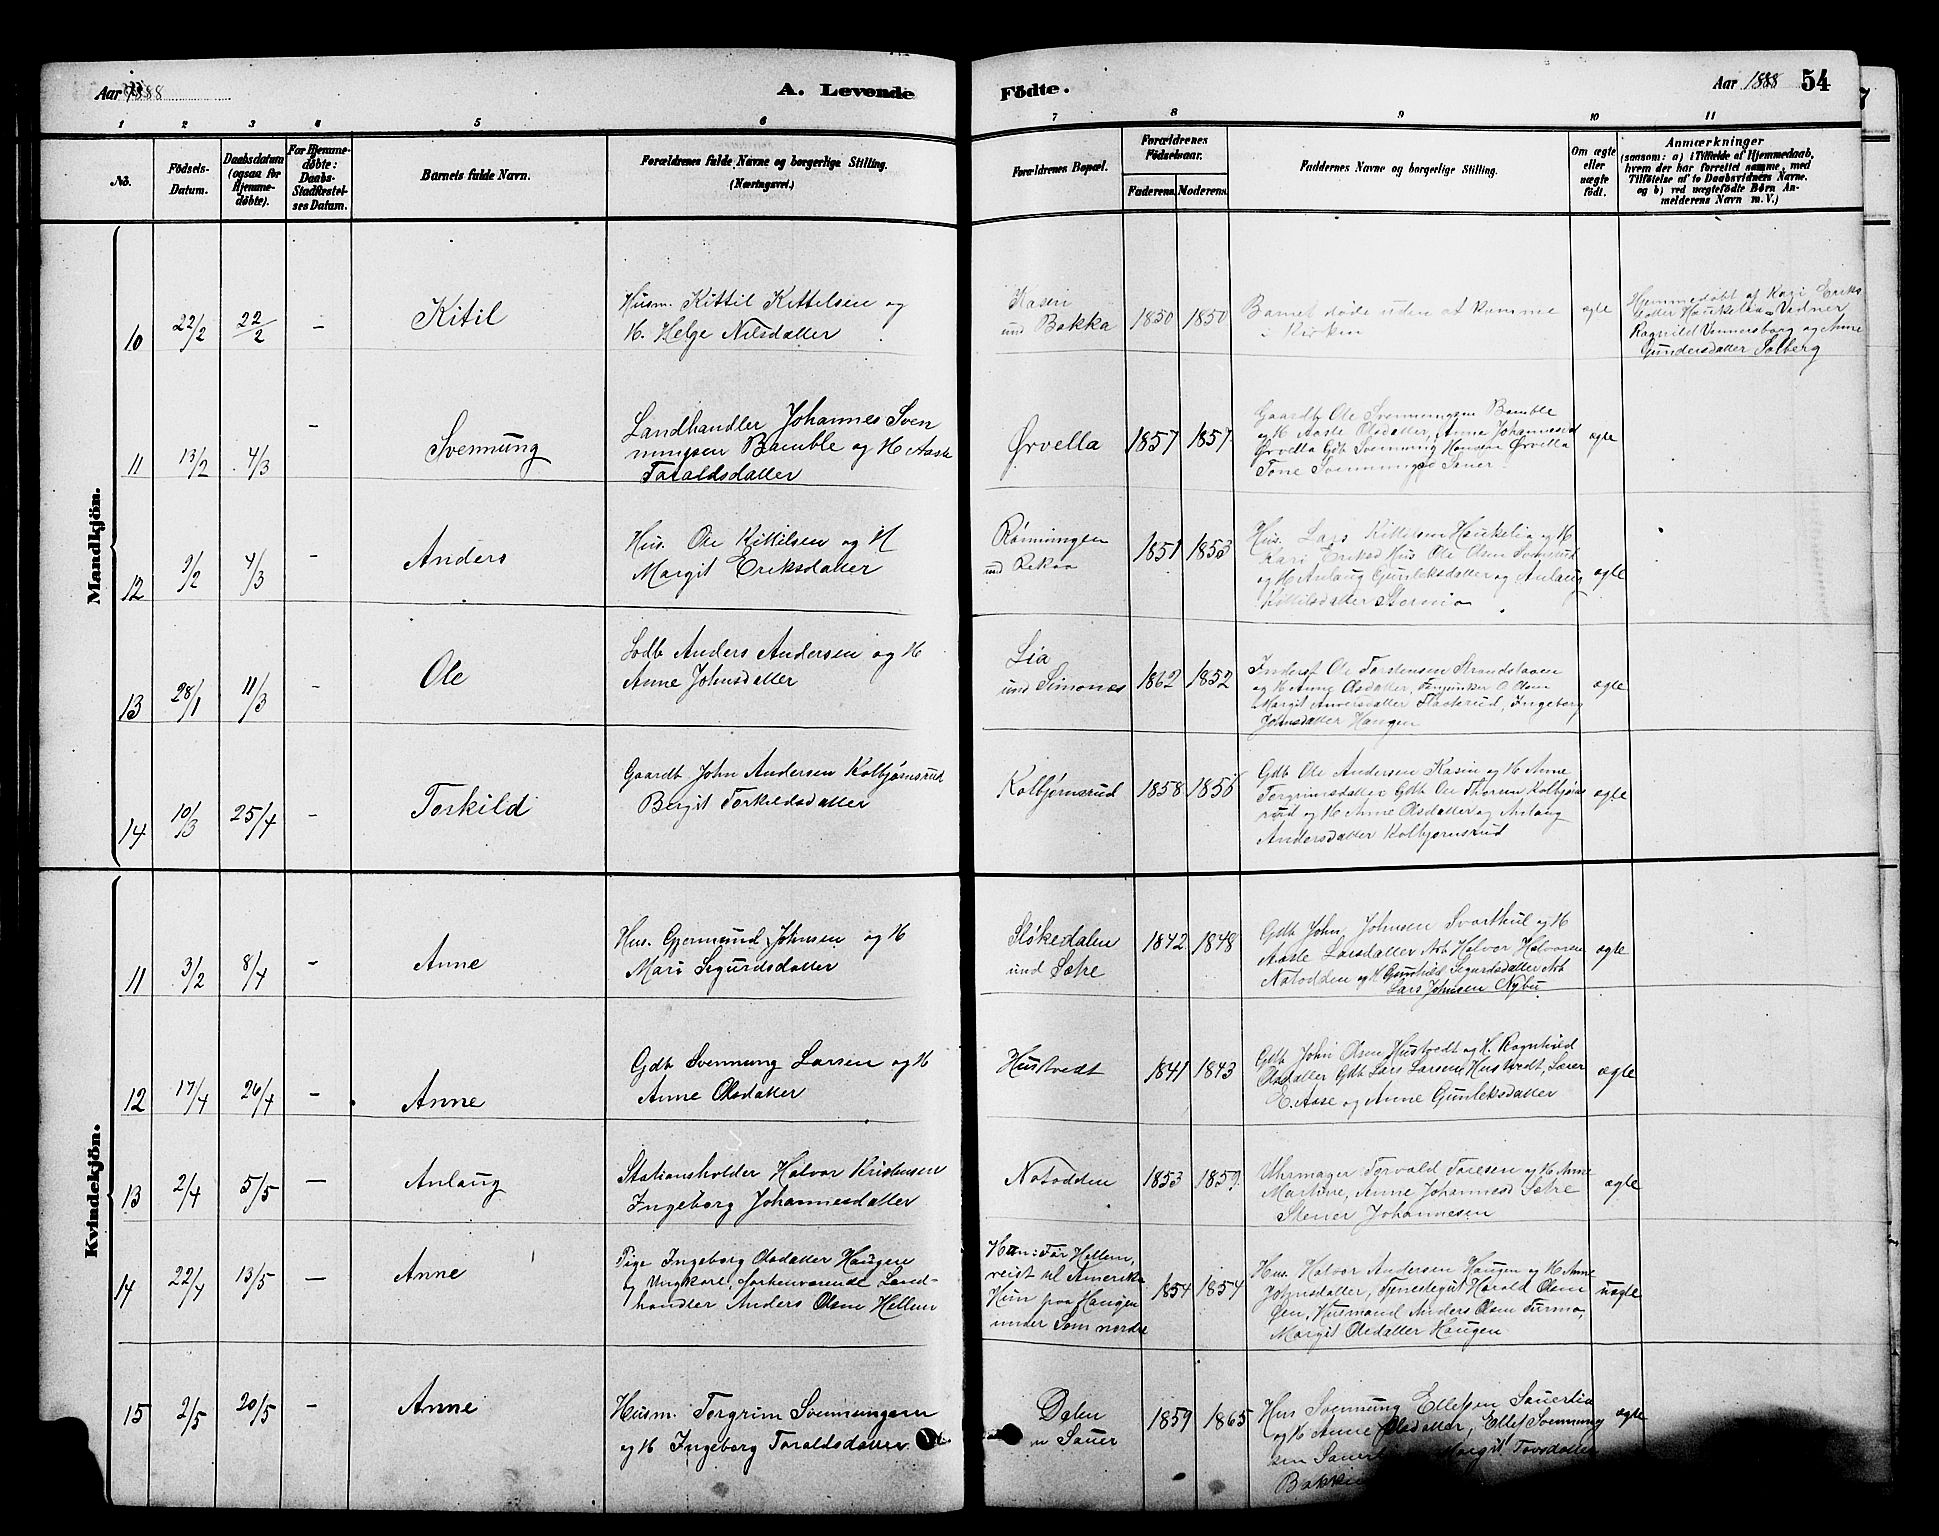 Aar 1888
A. Levende
Fødte.
Aar 1888
54
1 2 3 4 5 6 7 8 9 10 11
No.
Fødsels-
Datum.
Daabsdatum
(ogsaa for
Hjemme-
døbte).
For Hjemme-
døbte:
Daabs-
Stadfæstel-
ses Datum.
Barnets fulde Navn.
Forældrenes fulde Navne og borgerlige Stilling.
(Næringsvei.)
Forældrenes Bopæl.
Forældrenes
Fødselsaar.
Faderens.
Moderens.
Faddernes Navne og borgerlige Stilling.
Om ægte
eller
uægte
født.
Anmærkninger
(saasom: a) i Tilfælde af Hjemmedaab,
hvem der har forrettet samme, med
Tilføielse af to Daabsvidners Navne.
og b) ved uægtefødte Børn An-
melderens Navn m. V.)
Mandkjön.
10
22/2
22/2
–
Kitil
Husm. Kittil Kittelsen og
K. Helge Nilsdatter
Kasin
und Bakka
1850
1850
Barnet døde uden at komme
i Kirken
ægte
Hjemmedøbt af Kari Eriks
datter Haukelia Vidner
Ragnild Vennersborg og Anne
Gundersdatter Solberg
11
13/2
4/3
–
Svennung
Landhandler Johannes Sven
nungsen Bamble og K Aaste
Taraldsdatter
Ørvella
1857
1857
Gaardb Ole Svennungsen Bamble
og K Aasle Olsdatter, Anne Johannesd
Ørvella Gdb Svennung Hansen Ørvella
Tone Svennungsd
ægte
12
9/2
4/3
–
Anders
Hus. Ole Kittilsen og K
Margit Eriksdatter
Rønningen
und
1851
1853
Hus. Lars Kittilsen Haukelia og K
Kari Eriksd Hus Ole Olsen
og K Anlaug Gunleksdatter og Anlaug
Kittilsdatter
ægte
13
28/1
11/3
–
Ole
Anders Andersen og K
Anne Johnsdatter
Lia
und Simonæs
1862
1852
Inderst Ole Torstensen
og K Anne Olsdatter, O. Olsen
Margit Ingeborg
Johnsdatter Haugen
ægte
14
10/3
25/4
–
Torkild
Gaardb John Andersen Kolbjørnsrud
Bergit Torkildsdatter
Kolbjørnsrud
1858
1856
Gdb Ole Andersen Kasin og K Anne
Torgrimsdatter Gdb Ole Thorsen Kolbjørns
rud og K Anne Olsdatter og Anlaug
Andersdatter Kolbjørnsrud
ægte
Kvindekjön.
11
3/2
8/4
–
Anne
Hus. Gjermund Johnsen og K
Mari Sigurdsdatter
Sløkedalen
und Sætre
1842
1848
Gdb John Johnsen Svarthul og K
Aasle Larsdatter Arb Halvor Halvorsen
Notodden og K Gunhild Sigurdsdatter Arb
Lars Johnsen Nybu
ægte
12
17/4
26/4
–
Anne
Gdb Svennung Larsen og K
Anne Olsdatter
Hustvedt
1841
1843
Gdb John Olsen Hustvedt og K. Ragnhild
Olsdatter Gdb Lars Larsen Hustvedt, Lærer
E. Aase og Anne Gunleksdatter
ægte
13
2/4
5/5
–
Anlaug
Stationsholder Halvor Kristensen
Ingeborg Johannesdatter
Notodden
1853
1859
Uhrmager Torvald Toresen og K Anne
Martine, Anne Johannesd Sætre
Stener Johannesen
ægte
14
22/4
13/5
–
Anne
Pige Ingeborg Olsdatter Haugen
og Ungkarl, forhenværende Land-
handler Anders Olsen Hellem
Han: Før Hellem,
reist til Amerika
Hun paa Haugen
under Sem nordre
1854
1854
Hus. Halvor Andersen Haugen og K Anne
Johnsdatter, Tjenestegut Harald Olsen
Husmand Anders Olsen
Margit Olsdatter Haugen
uægte
15
2/5
20/5
–
Anne
Husm. Torgrim Svennungsen
og K Ingeborg Taraldsdatter
Dalen
Sauer
1859
1865
Hus Svennung Ellefsen Sauerlia
og K Anne Olsdatter, Ellef Svennung
sen Margit Tovsdatter
ægte